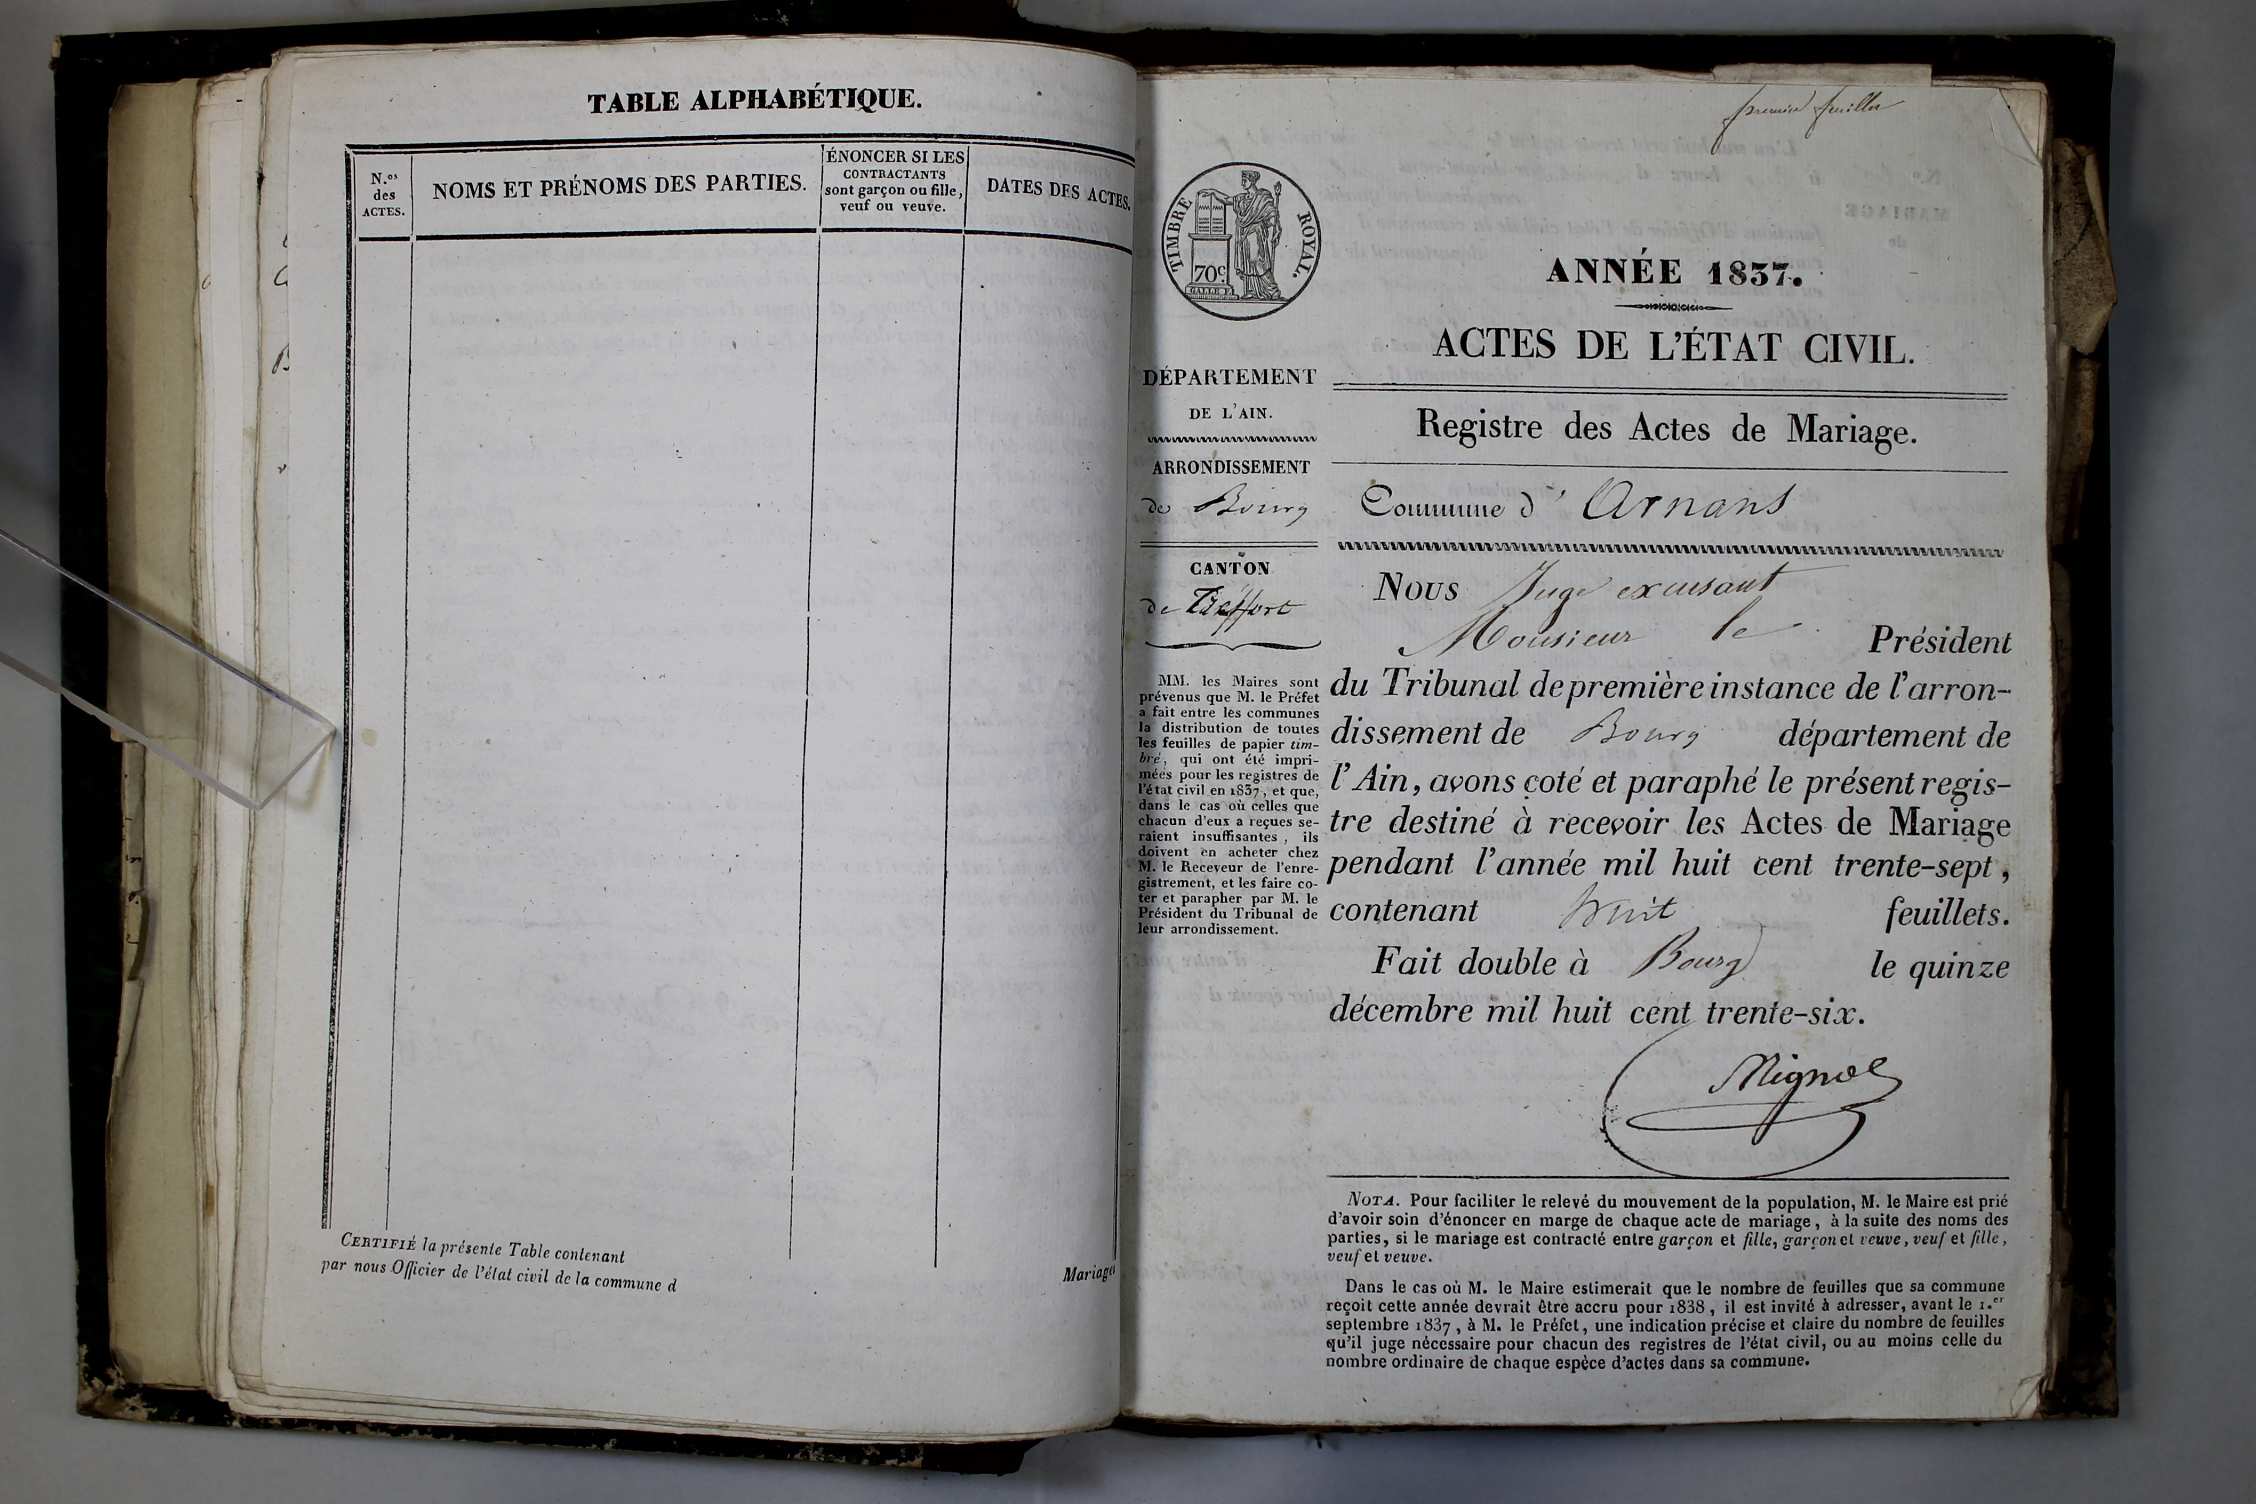 TABLE ALPHABÉTIQUE.
N.os
des
ACTES.
NOMS ET PRÉNOMS DES PARTIES.
ÉNONCER SI LES
CONTRACTANTS
sont garçon ou fille,
veuf ou veuve.
DATES DES ACTES.
CERTIFIÉ la présente Table contenant
Mariages
par nous Officier de l'état civil de la commune d
premier feuillet
TIMBRE ROYAL.
70c.
ANNÉE 1837.
ACTES DE L'ÉTAT CIVIL.
DÉPARTEMENT
DE L'AIN.
ARRONDISSEMENT
de Bourg
CANTON
de Treffort
MM. les Maires sont
prévenus que M. le Préfet
a fait entre les communes
la distribution de toutes
les feuilles de papier tim-
bré, qui ont été impri-
mées pour les registres de
l'état civil en 1837, et que,
dans le cas où celles que
chacun d'eux a reçues se-
raient insuffisantes, ils
doivent en acheter chez
M. le Receveur de l'enre-
gistrement, et les faire co-
ter et parapher par M. le
Président du Tribunal de
leur arrondissement.
Registre des Actes de Mariage.
Commune d' Arnans
NOUS Juge excusant
Monsieur le Président
du Tribunal de première instance de l'arron-
dissement de Bourg département de
l'Ain, avons coté et paraphé le présent regis-
tre destiné à recevoir les Actes de Mariage
pendant l'année mil huit cent trente-sept,
contenant huit feuillets.
Fait double à Bourg le quinze
décembre mil huit cent trente-six.
NOTA. Pour faciliter le relevé du mouvement de la population, M. le Maire est prié
d'avoir soin d'énoncer en marge de chaque acte de mariage, à la suite des noms des
parties, si le mariage est contracté entre garçon et fille, garçon et veuve, veuf et fille,
veuf et veuve.
Dans le cas où M. le Maire estimerait que le nombre de feuilles que sa commune
reçoit cette année devrait être accru pour 1838, il est invité à adresser, avant le 1.er
septembre 1837, à M. le Préfet, une indication précise et claire du nombre de feuilles
qu'il juge nécessaire pour chacun des registres de l'état civil, ou au moins celle du
nombre ordinaire de chaque espèce d'actes dans sa commune.